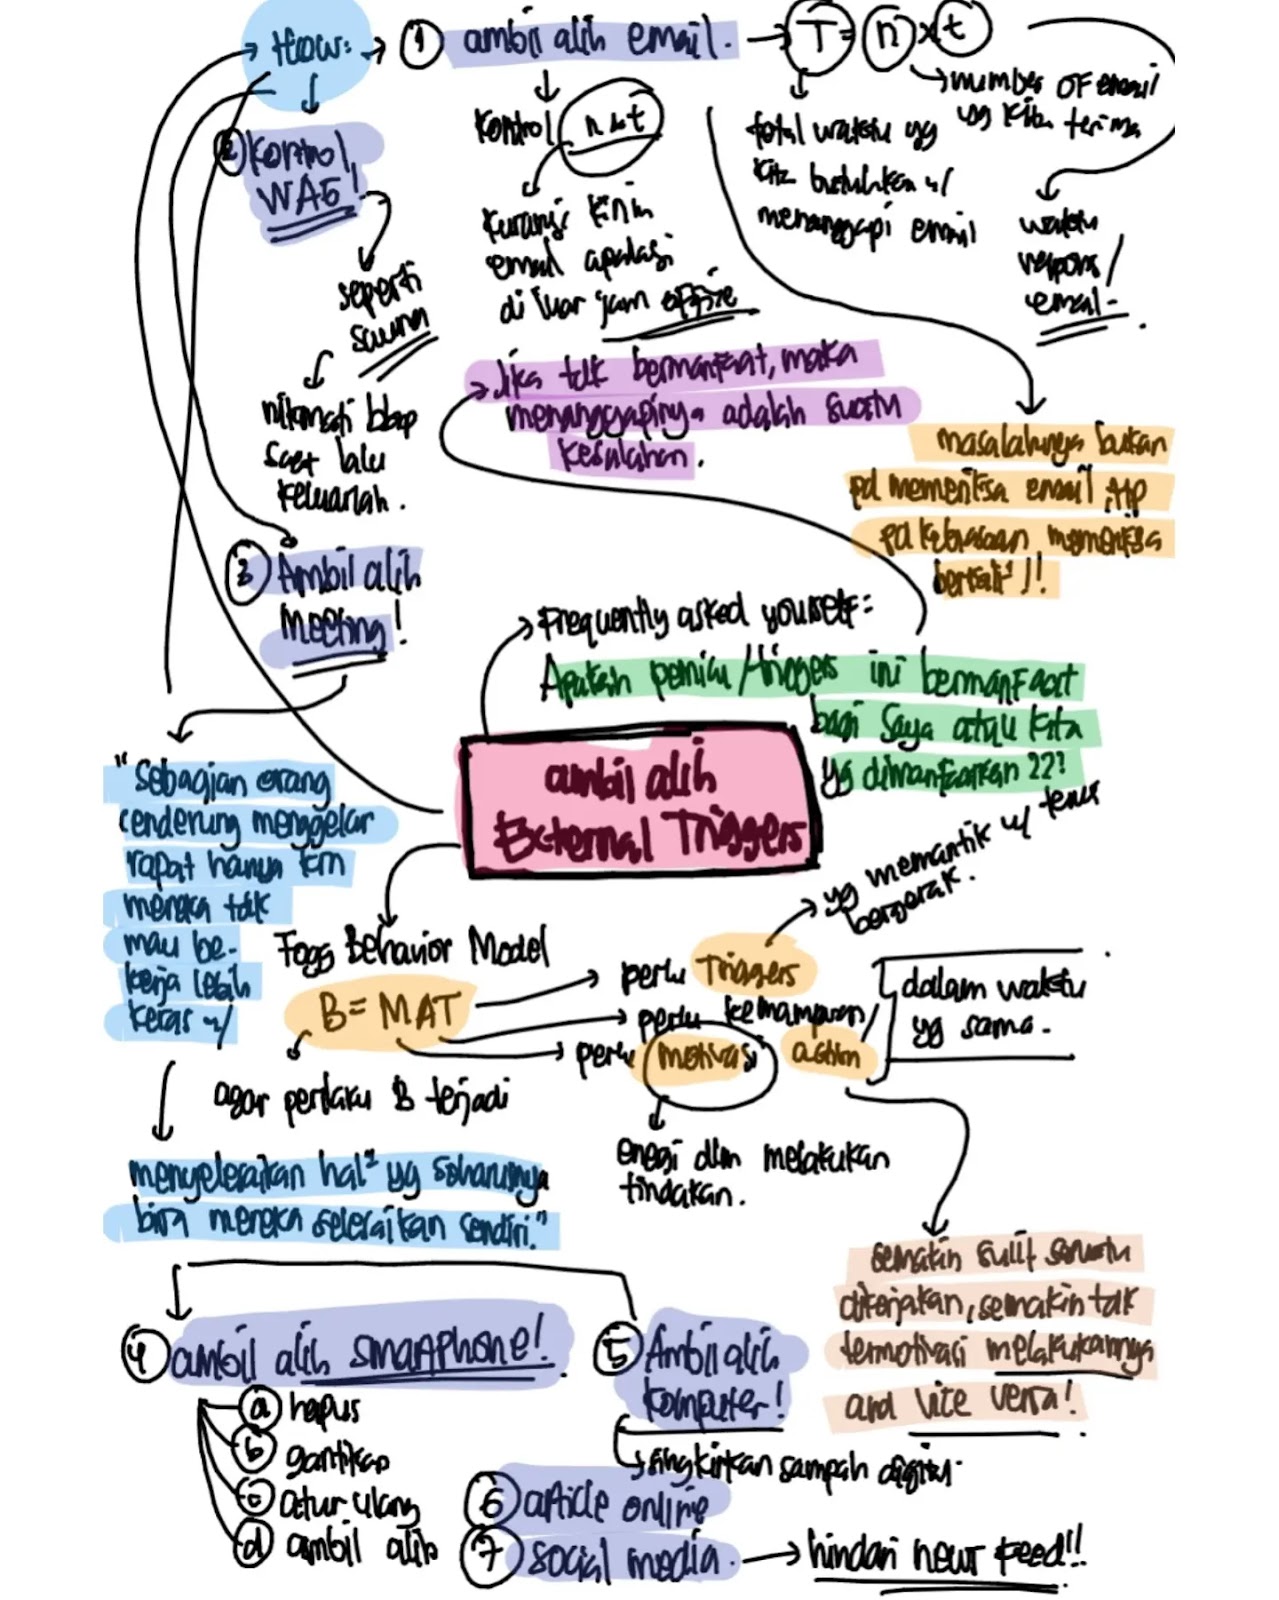 How:
① ambil alih email.
T = n x t
number of email
yg kita terima
total waktu yg
kita butuhkan u/
menanggapi email
waktu
respons/
email.
Kontrol n & t
kurangi kirim
email apalagi
di luar jam office
② Kontrol
WAG!
seperti
sauna
nikmati bbrp
saat lalu
keluarlah.
Jika tdk bermanfaat, maka
menanggapinya adalah suatu
kesalahan.
masalahnya bukan
pd memeriksa email, ttp
pd kebiasaan memeriksa
berkali²!!
③ Ambil alih
meeting!
Frequently asked yourself:
Apakah pemicu/triggers ini bermanfaat
bagi saya atau kita
yg dimanfaatkan???
ambil alih
External Triggers
"Sebagian orang
cenderung menggelar
rapat hanya krn
mereka tdk
mau be-
kerja lebih
keras u/
menyelesaikan hal² yg seharusnya
bisa mereka selesaikan sendiri."
Fogg Behavior Model
B = MAT
agar perilaku B terjadi
perlu Triggers
yg memantik u/ terus
bergerak.
perlu kemampuan/
action
perlu motivasi
dalam waktu
yg sama.
energi dlm melakukan
tindakan.
semakin sulit suatu
dikerjakan, semakin tak
termotivasi melakukannya
and vice versa!
④ ambil alih smartphone!
ⓐ hapus
ⓑ gantikan
ⓒ atur ulang
ⓓ ambil alih
⑤ Ambil alih
komputer!
singkirkan sampah digital.
⑥ article online
⑦ social media.
hindari news feed!!